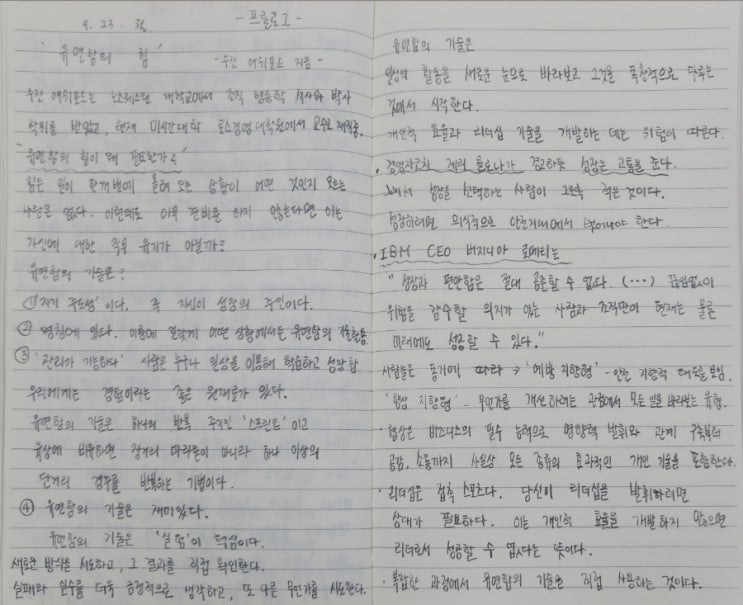 9. 23. 월
- 프롤로그 -
'유연함의 힘'
- 수잔 애쉬포드 지음 -
수잔 애쉬포드는 노스웨스턴 대학교에서 조직 행동학 석사와 박사
학위를 받았고, 현재 미시간대학 로스경영대학원에서 교수로 재직중.
'유연함의 힘이 왜 필요한가?'
힘든 일이 한꺼번에 몰려 오는 상황이 어떤 것인지 모르는
사람은 없다. 이런데도 아무 준비를 하지 않는다면 이는
자신에 대한 직무 유기가 아닐까?
유연함의 기술은?
① '자기 주도성'이다. 즉 자신이 성장의 주인이다.
② 명칭에 있다. 이름에 걸맞게 어떤 상황에서든 유연함의 기술활용
③ '관리가 가능하다' 사람은 누구나 일상을 이용해 학습하고 성장함
우리에게는 경험이라는 좋은 원재료가 있다.
유연함의 기술은 하나의 반복 주기인 '스프린트'이고
육상에 비유하면 장거리 마라톤이 아니라 하나 이상의
단거리 경주를 반복하는 기법이다.
④ 유연함의 기술은 재미있다.
유연함의 기술은 '실험'이 핵심이다.
새로운 방식을 시도하고, 그 결과를 직접 확인한다.
실패와 실수를 더욱 긍정적으로 생각하고, 또 다른 무언가를 시도한다.
유연함의 기술은
일상의 활동을 새로운 눈으로 바라보고 그것을 독창적으로 다루는
것에서 시작한다.
개인적 효율과 리더십 기술을 개발하는 데는 위험이 따른다.
· 경영자코치 제리 콜로나가 경고하듯 성장은 고통을 준다.
그래서 성장을 선택하는 사람이 그토록 적은 것이다.
성장하려면 의식적으로 안전지대에서 벗어나야 한다.
· IBM CEO 버지니아 로메티는
"성장과 편안함은 절대 공존할 수 없다. (···) 끊임없이
위험을 감수할 의지가 있는 사람과 조직만이 현재는 물론
미래에도 성공할 수 있다."
사람들은 동기에 따라 → '예방 지향형' - 안전 지향적 태도를 보임
'향상 지향형' - 무언가를 개선하려는 관점에서 모든 일을 바라보는 유형.
· 협상은 비즈니스의 필수 능력으로 영향력 발휘와 관계 구축부터
공감, 소통까지 사실상 모든 종류의 효과적인 개인 기술을 포함한다.
· 리더십은 접촉 스포츠다. 당신이 리더십을 발휘하려면
상대가 필요하다. 이는 개인적 효율을 개발하지 않으면
리더로서 성공할 수 없다는 뜻이다.
· 복잡한 과정에서 유연함의 기술은 직접 사용하는 것이다.